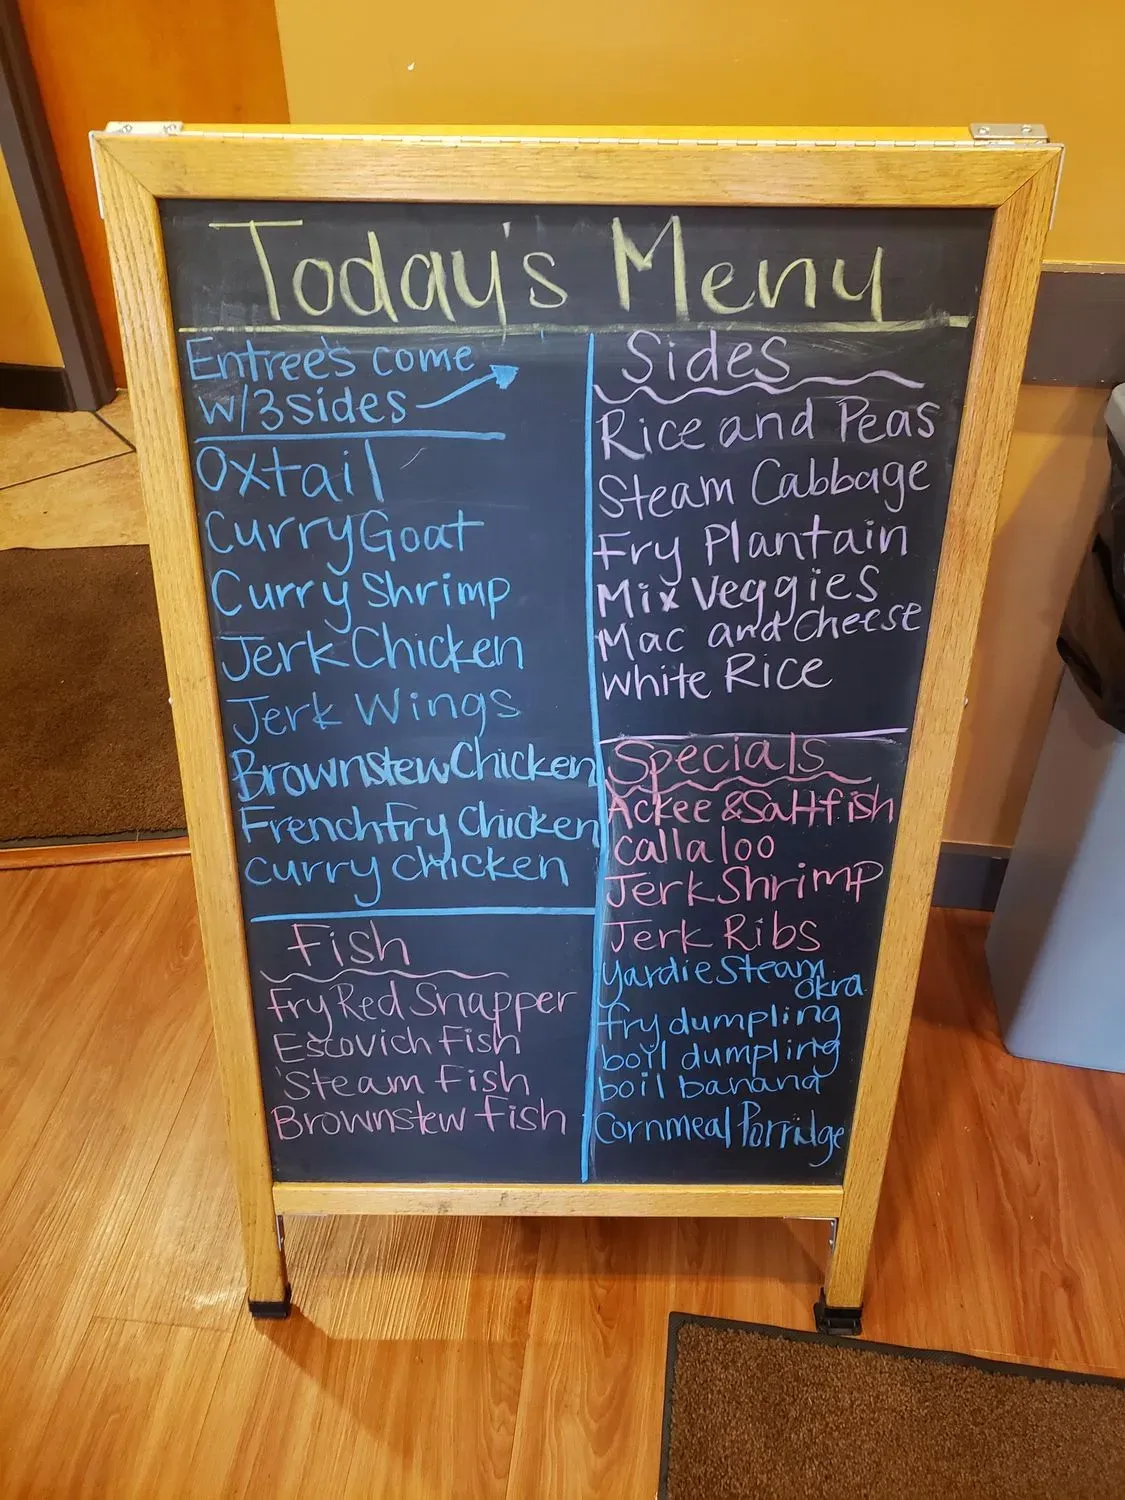 Today's Menu
Entree's come
w/3 sides
Oxtail
Curry Goat
Curry Shrimp
Jerk Chicken
Jerk Wings
Brownstew Chicken
Frenchfry Chicken
Curry Chicken
Fish
Fry Red Snapper
Escovich Fish
Steam Fish
Brownstew Fish
Sides
Rice and Peas
Steam Cabbage
Fry Plantain
Mix Veggies
Mac and Cheese
White Rice
Specials
Ackee & Saltfish
Callaloo
Jerk Shrimp
Jerk Ribs
Yardie Steam
okra
fry dumpling
boil dumpling
boil banana
Cornmeal Porridge